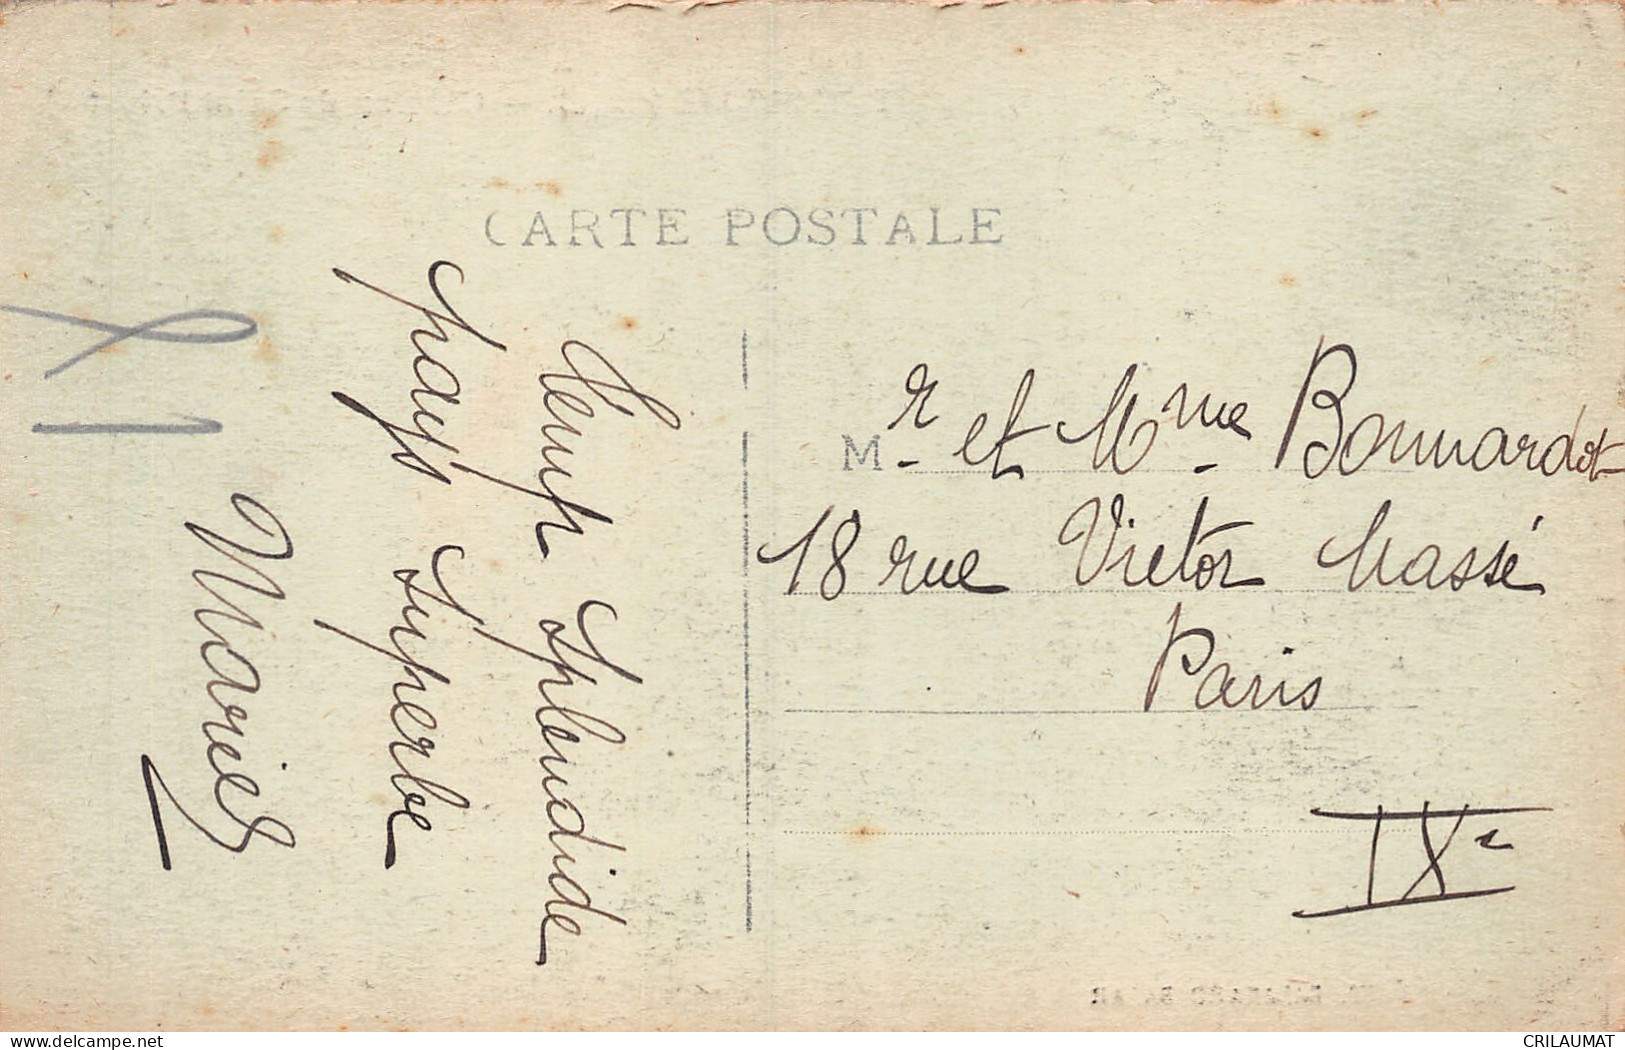 CARTE POSTALE
Temps Splendide
pays Superbe
Marie
Mr et Mme Bonnardot
18 rue Victor Massé
Paris
IXe
www.delcampe.net
CRILAUMAT